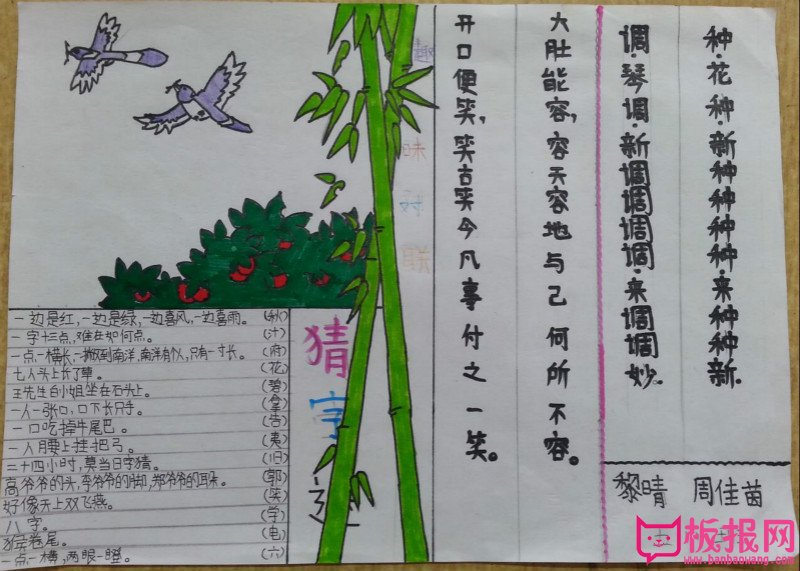 种·花种·新种种种种·来种种新.
调·琴调·新调调调调·来调调妙。
大肚能容,容天容地与己何所不容。
开口便笑,笑古笑今凡事付之一笑。
趣味对联
黎晴 周佳茵
猜字
一边是红,一边是绿,一边喜风,一边喜雨。(秋)
一字十三点,难在如何点。(汁)
一点一横长,一撇到南洋,南洋有个人,只有一寸长。(府)
七人头上长了草。(花)
王先生白小姐坐在石头上。(碧)
一人一张口,口下长只手。(拿)
一口吃掉牛尾巴。(告)
一人腰上挂把弓。(夷)
二十四小时,莫当日字猜。(旧)
高爷爷的头,李爷爷的脚,郑爷爷的耳朵。(郭)
好像天上双飞燕。(笑)
八字。(学)
猴卷尾。(电)
一点一横,两眼一瞪。(六)
板报网
www.banbaowang.com